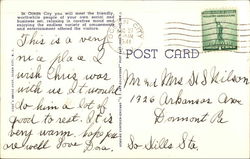 In Ocean City you will meet the friendly,
worthwhile people of your own social and
business set, relaxing in carefree mood and
enjoying the endless variety of amusements
and entertainment offered the visitor.
POST CARD
This is a very
nice place I
wish Chris was
with us it would
do him a lot of
good to rest. It is
very warm hope you
are well love Dora.
Mr and Mrs H S Wilson
1926 Arkansas Ave
Dormont Pa
So Hills Sta.